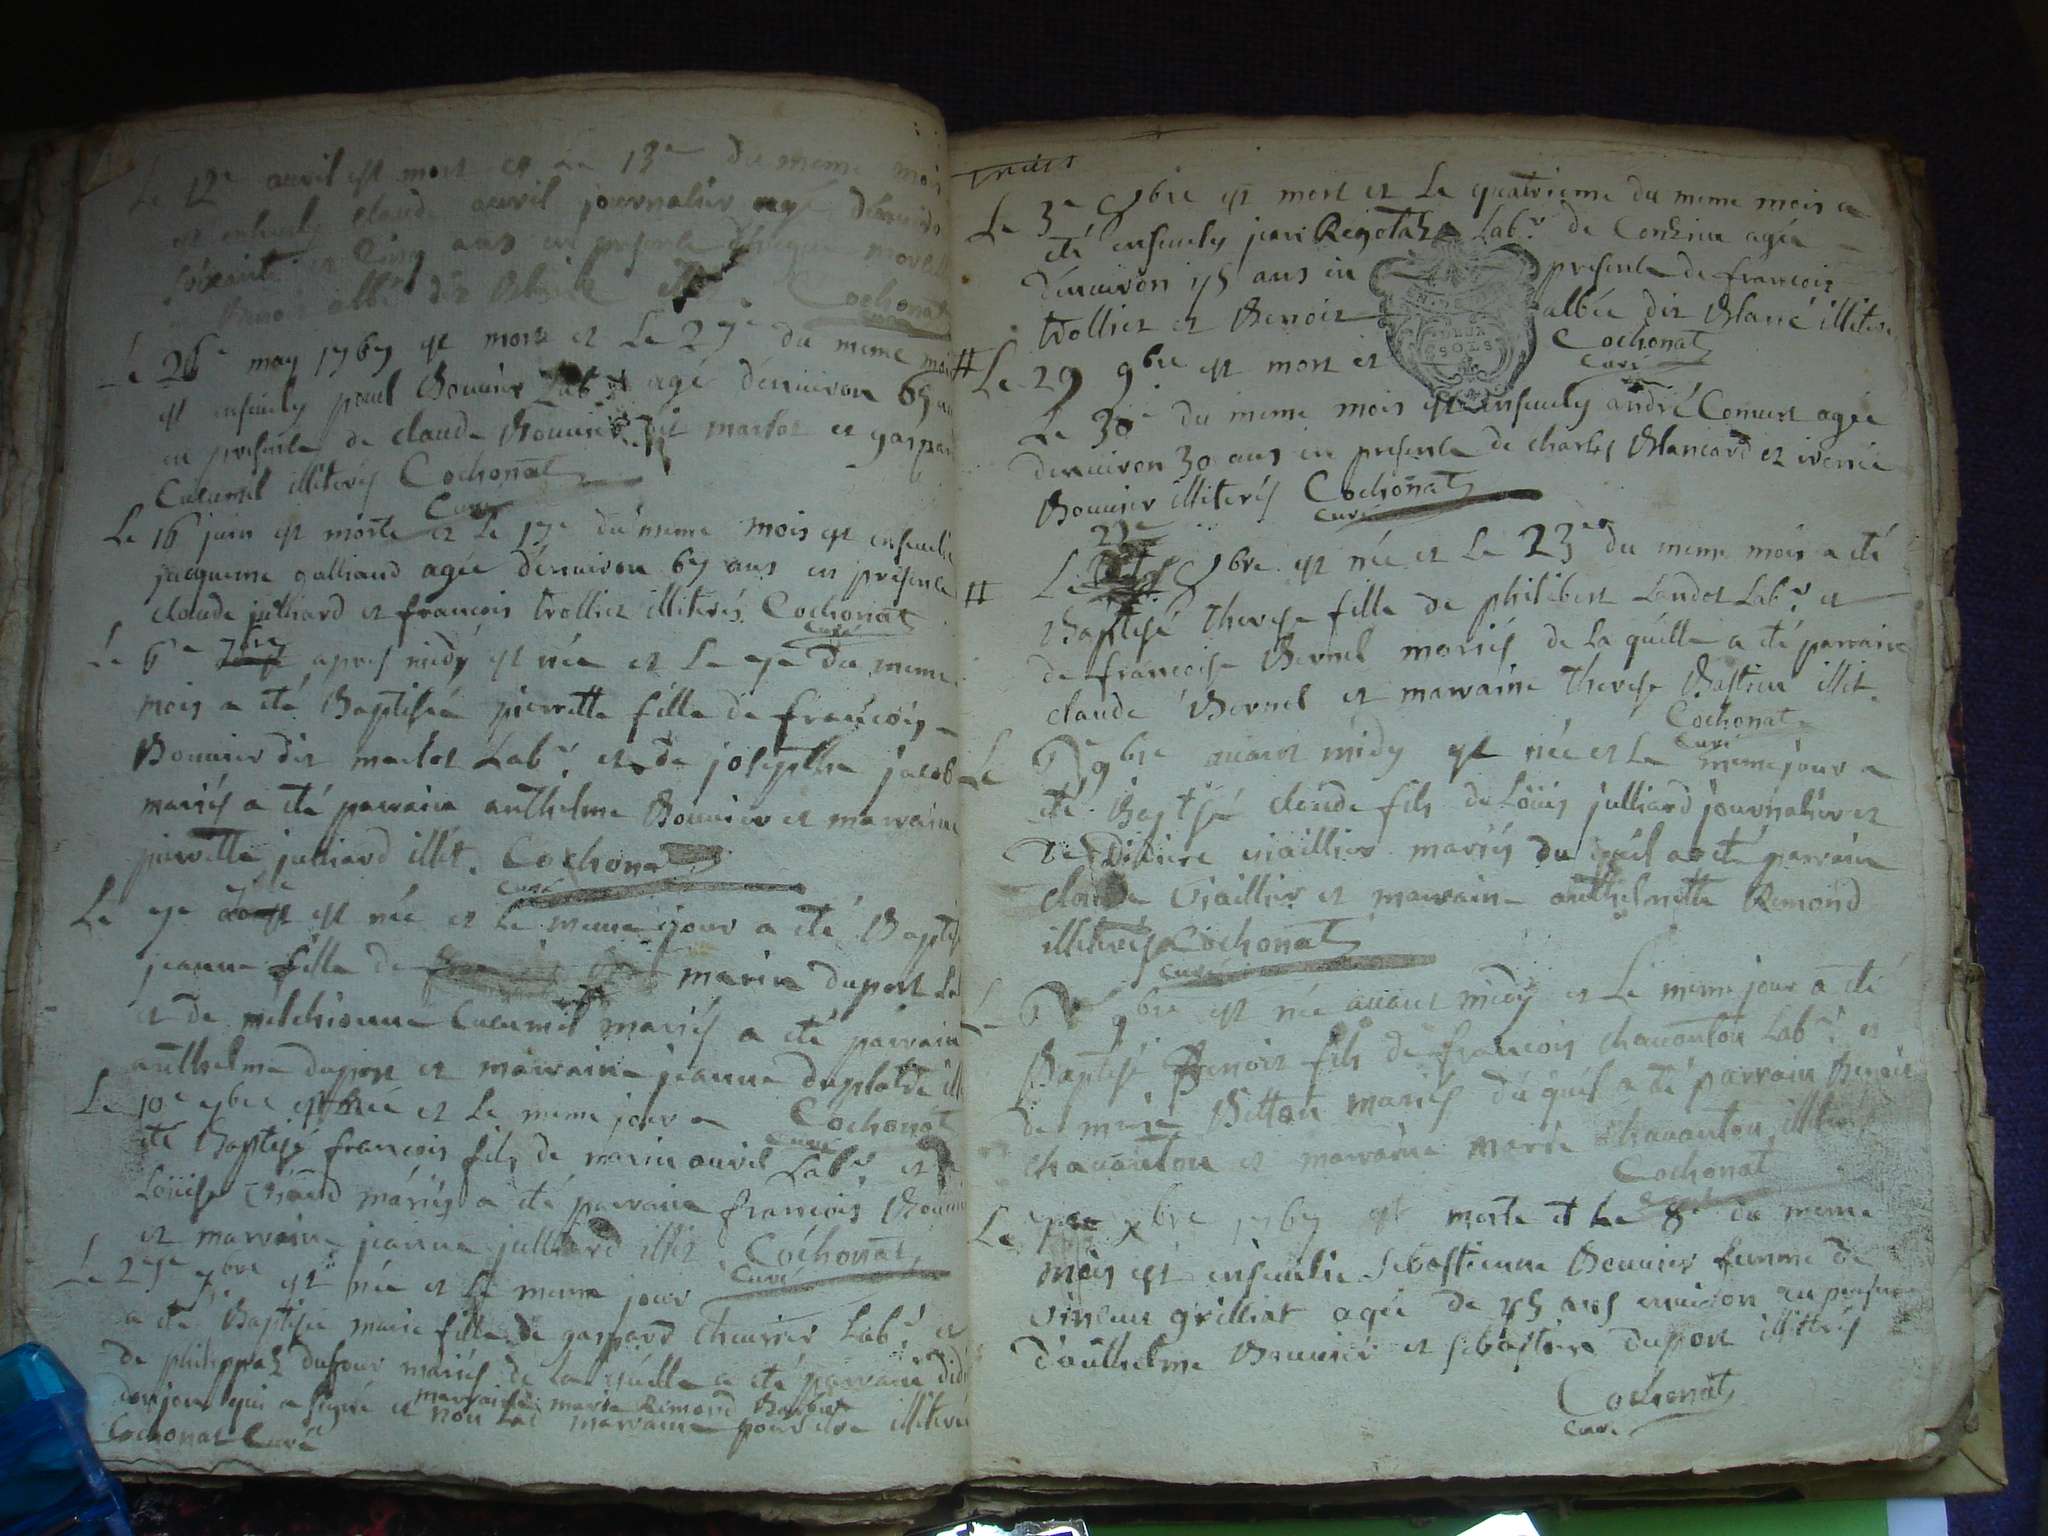 Le 12e auril est mort et le 13e du meme mois
est enseuely claude auril journalier agé denuiron
soixante et cinq ans en presence
Benoit albé dit Cochonat
curé
Le 26e may 1767 est mort et Le 27e du meme mois
est enseuely paul Bouuier Labr agé denuiron 65 ans
en presence de claude Bouuier dit marlot et gaspard
Cucumel illiterés Cochonat
Curé
Le 16 juin est morte et Le 17e du meme mois est enseuelie
jacqueme galliand agée denuiron 67 ans en presence
claude julliard et francois trollier illiterés Cochonat
curé
Le 6e 7bre apres midy est née et Le 7e du meme
mois a eté Baptisée pierrette fille de francois
Bouuier dit marlot Labr. et de josephte jacob
mariés a eté parrain anthelme Bouuier et marraine
pierrette julliard illit. Cochonat
curé
Le 7e 7bre est née et Le meme jour a eté Baptisé
jeanne fille de marin duport La
et de melchionne Cucumel mariés a eté parrain
anthelme duport et marraine jeanne duplatre ill
Cochonat
curé
Le 10e 7bre est née et Le meme jour a
eté Baptisé francois fils de marin auril Labr. et de
Louise mariés a eté parrain francois Bouuier
et marraine jeanne julliard illit. Cochonat
Curé
Le 27e 7bre est née et Le meme jour
a eté Baptisée marie fille de gaspard Labr. et
de philippaz dufour mariés de la quelle a eté parrain didi
donjour qui a signé et marraine marie Remond
non La marraine pour etre illiterée
Cochonat Curé
Le 3e 9bre est mort et Le quatrieme du meme mois a
eté enseuely jean Regotaz Labr. de Conzieu agée
denuiron 75 ans en presence de francois
trollier et Benoit albée dit Blanc illiterés
Cochonat
curé
# Le 29 9bre est mort et
Le 30e du meme mois est enseuely andré Comuet agée
denuiron 30 ans en presence de charles Blancard et irenée
Bouuier illiterés Cochonat
curé
22e
# Le 9bre est née et Le 23e du meme mois a eté
Baptisé Therese fille de philibert Landot Labr. et
de francoise Bernel mariés de la quelle a eté parrain
claude Bernel et marraine Therese Bastien illit.
Cochonat
curé
Le 6e 9bre auant midy est née et Le meme jour a
eté Baptisé claude fils de Loüis julliard journalier et
De Didiere uiaillier mariés du quel a eté parrain
claude Uiaillier et marraine anthelmette Remond
illiterés Cochonat
curé
Le 6e 9bre est née auant midy et Le meme jour a eté
Baptisé Benoit fils de francois chauanton Labr. et
de marie Bitton mariés du quel a eté parrain Benoit
chauanton et marraine marie chauanton illiterés
Cochonat
Le 7e xbre 1767 est morte et Le 8e du meme
mois est enseuelie Sebastienne Bouuier femme de
uincent grilliat agée de 75 ans enuiron en presence
d'anthelme Bouuier et sebastien duport illiterés
Cochonat
Curé